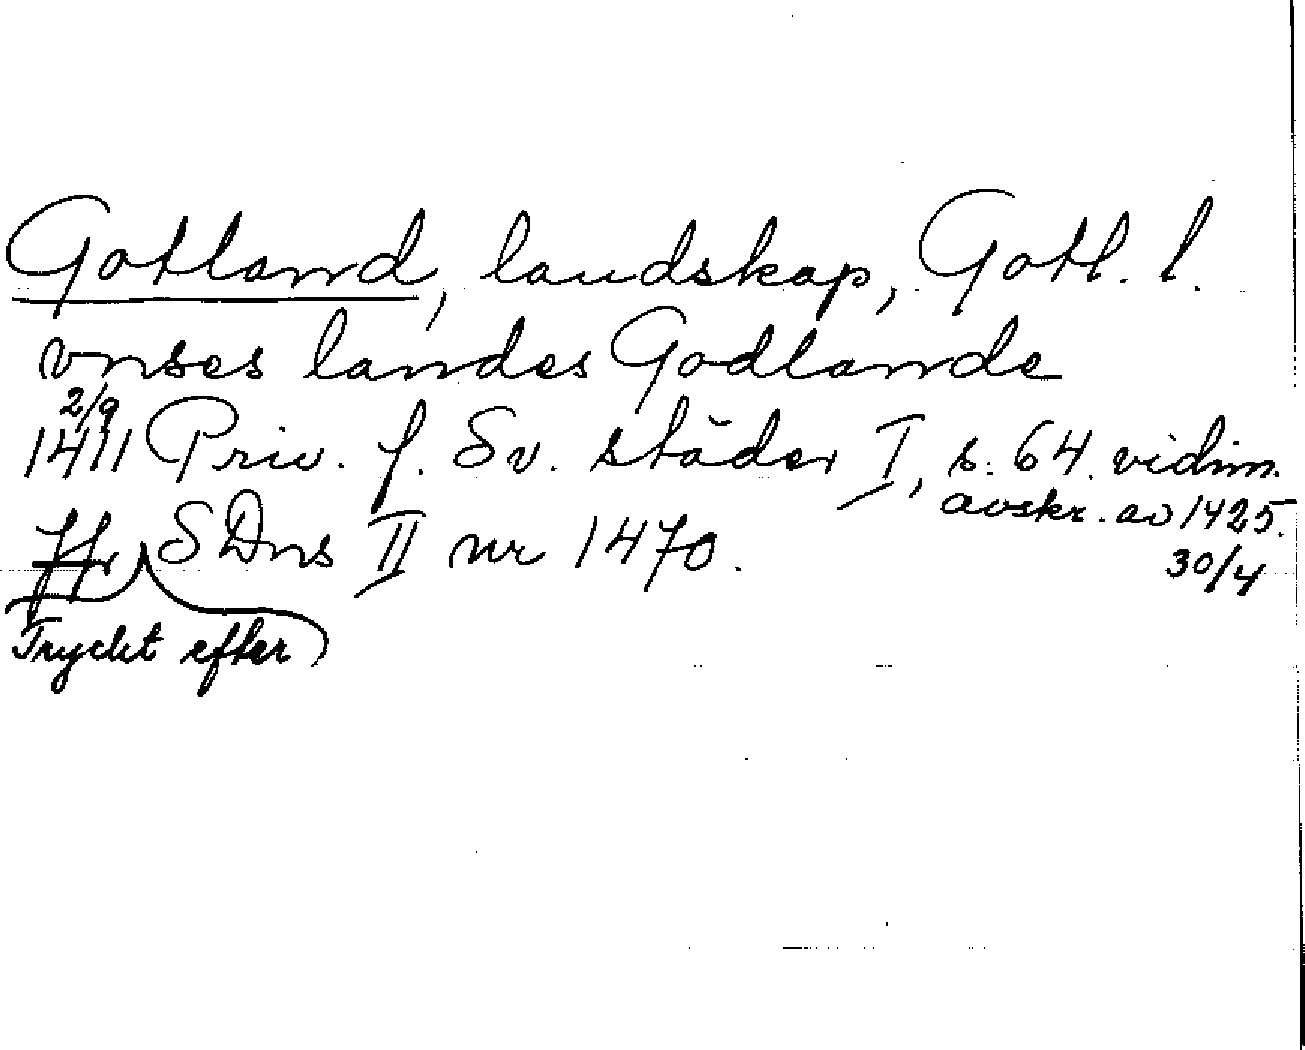 Gotland, landskap, Gotl. l.
vnses landes Godlande
2/9
1411 Priv. f. Sv. städer I, s. 64. vidim.
avskr. av 1425.
30/4
Jfr SDns II nr 1470.
Tryckt efter